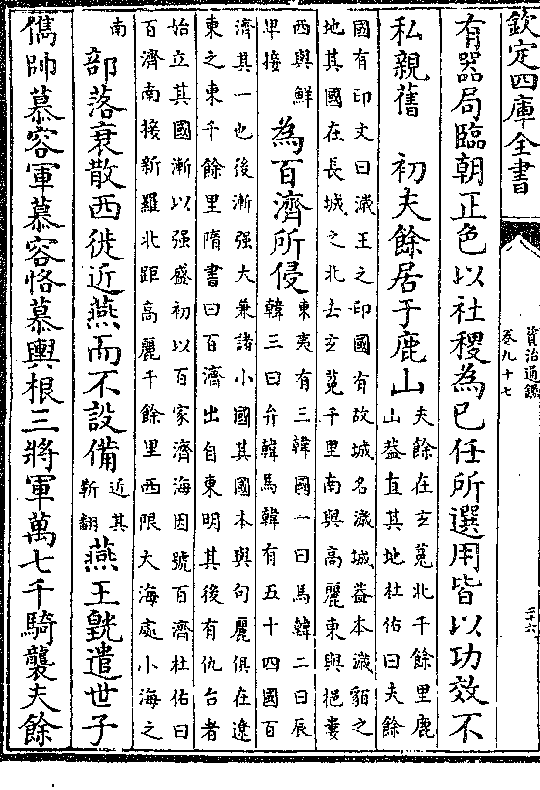 欽定四庫全書
資治通鑑
卷九十七
二十六
有器局臨朝正色以社稷為已任所選用皆以功效不
私親舊　初夫餘居于鹿山
夫餘在玄菟北千餘里鹿
山蓋直其地杜佑曰夫餘
國有印文曰濊王之印國有故城名濊城蓋本濊貊之
地其國在長城之北去玄菟千里南與高麗東與挹婁
西與鮮
卑接
為百濟所侵
東夷有三韓國一曰馬韓二曰辰
韓三曰弁韓馬韓有五十四國百
濟其一也後漸强大兼諸小國其國本與句麗俱在遼
東之東千餘里隋書曰百濟出自東明其後有仇台者
始立其國漸以强盛初以百家濟海因號百濟杜佑曰
百濟南接新羅北距高麗千餘里西限大海處小海之
南
部落衰散西徙近燕而不設備
近其
靳翻
燕王皝遣世子
儁帥慕容軍慕容恪慕輿根三將軍萬七千騎襲夫餘